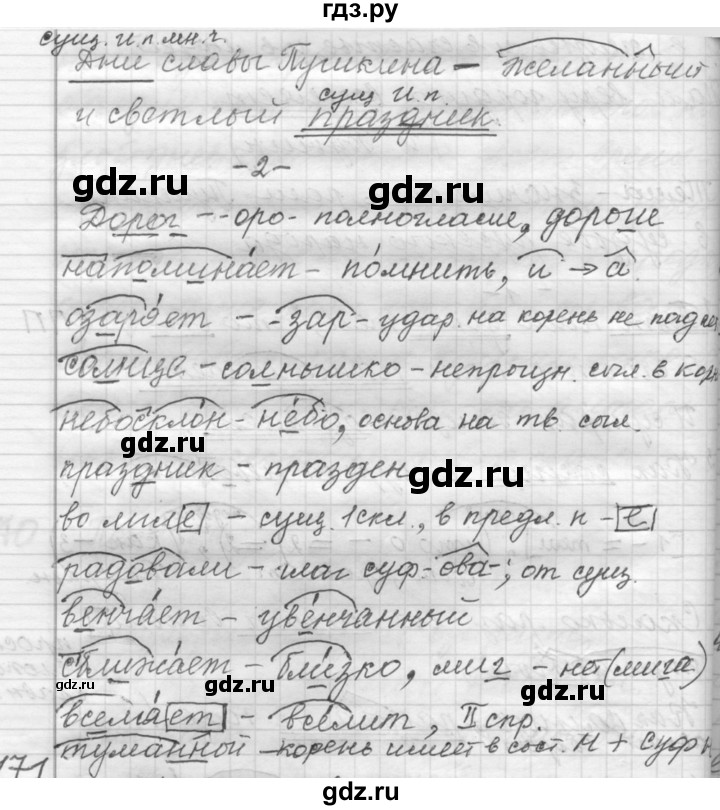 гдз.ру
сущ. И.п. мн.ч.
Дни славы Пушкина – желанный
сущ И.п.
и светлый праздник.
-2-
gdz.ru gdz.ru
Дорог - -оро- полногласие, дороги
напоминает - помнить, и → а.
озаряет - -зар- удар. на корень не пад
солнце - солнышко - непроизн. согл. в кор
небосклон - небо, основа на тв. согл.
gdz.ru
праздник - празден
gdz.ru
во мгле - сущ. 1 скл., в предл. п - е
радовали - глаг суф -ова-; от сущ.
венчает - увенчанный
сближает - близко, миг - нет (мига)
gdz.ru gdz.ru gdz.ru
вселяет - вселит, II спр.
туманный - корень имеет в сост. Н + суф н
171
gdz.ru